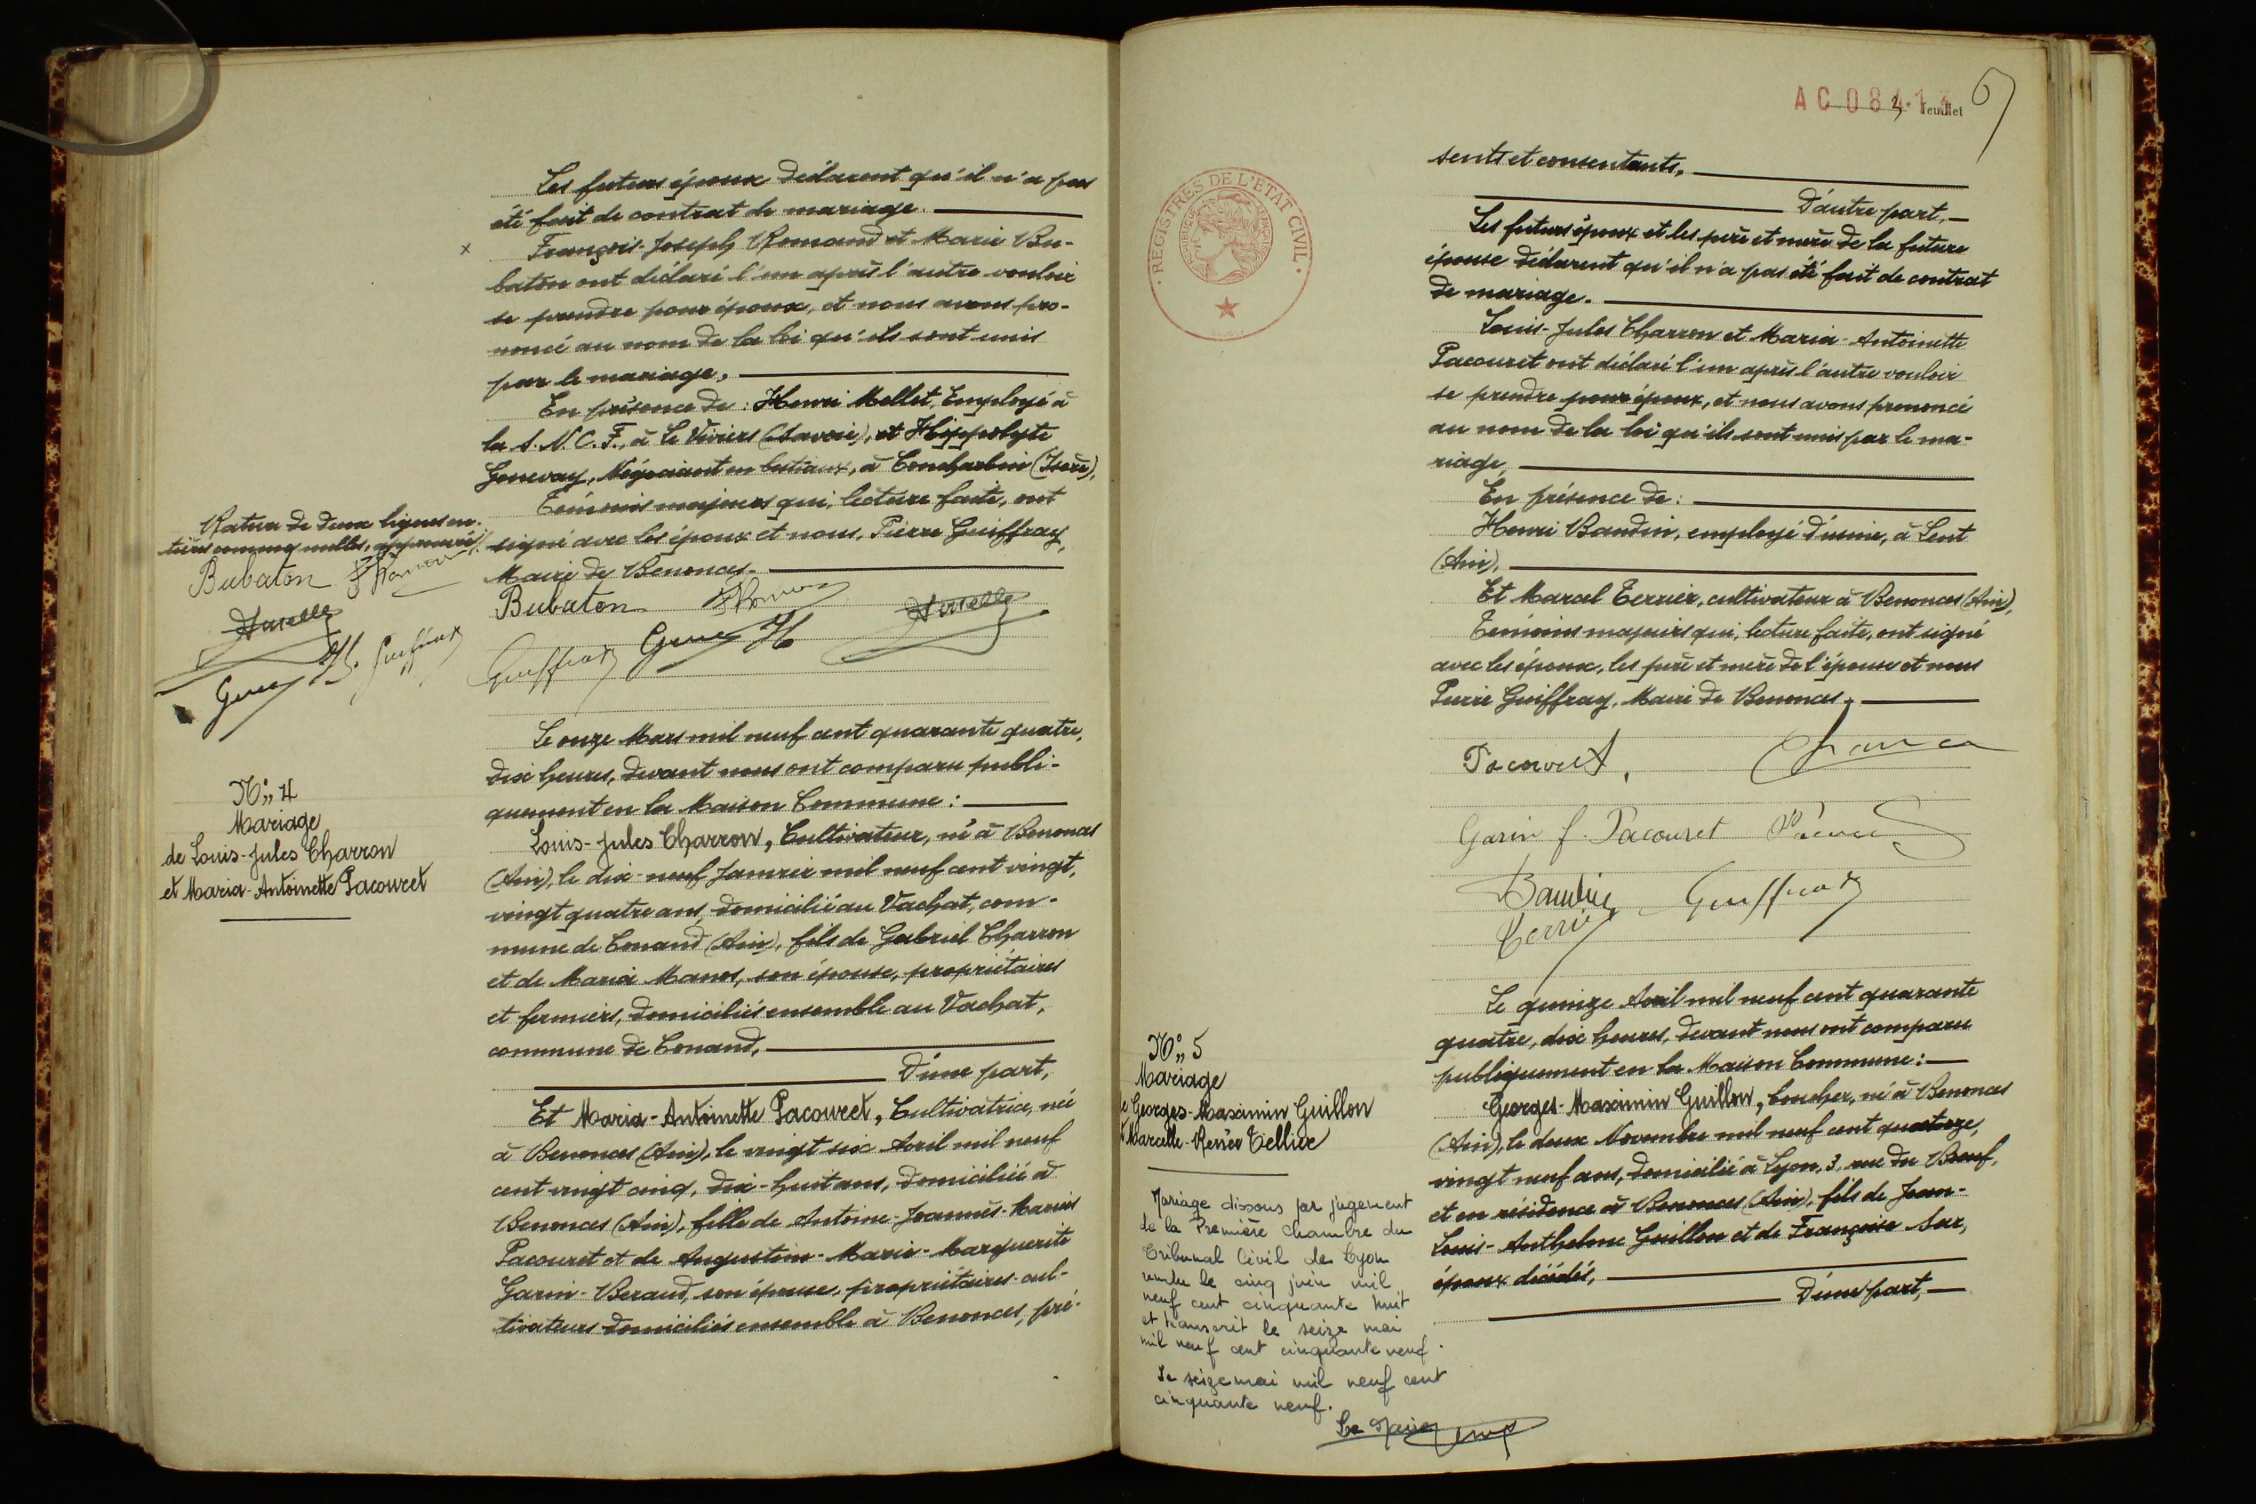 Les futurs époux déclarent qu'il n'a pas
été fait de contrat de mariage.
x François-Joseph Romand et Marie Bu-
baton ont déclaré l'un après l'autre vouloir
se prendre pour époux, et nous avons pro-
noncé au nom de la loi qu'ils sont unis
par le mariage,
En présence de : Henri Mellet, Employé à
la S.N.C.F., à Le Viviers (Savoie), et Hippolyte
Genevay, Négociant en bestiaux, à Concharbin (Isère),
Témoins majeurs qui, lecture faite, ont
signé avec les époux et nous, Pierre Guiffray,
Maire de Benonces.
Bubaton
Guiffray
Rature de deux lignes en-
tières comme nulles, approuvée
Bubaton
Guiffray
Le onze Mars mil neuf cent quarante quatre,
dix heures, devant nous ont comparu publi-
quement en la Maison Commune :
N° 4
Mariage
de Louis-Jules Charron
et Maria-Antoinette Pacouret
Louis-Jules Charron, Cultivateur, né à Benonces
(Ain), le dix-neuf Janvier mil neuf cent vingt,
vingt quatre ans, domicilié au Vachat, com-
mune de Conand (Ain), fils de Gabriel Charron
et de Maria Manos, son épouse, propriétaires
et fermiers, domiciliés ensemble au Vachat,
commune de Conand,
D'une part,
Et Maria-Antoinette Pacouret, Cultivatrice, née
à Benonces (Ain), le vingt six Avril mil neuf
cent vingt cinq, dix-huit ans, domiciliée à
Benonces (Ain), fille de Antoine-Joannès-Marius
Pacouret et de Augustine-Marie-Marguerite
Garin-Beraud, son épouse, propriétaires-cul-
tivateurs domiciliés ensemble à Benonces, pré-
AC084
3e Feuillet
REGISTRES DE L'ETAT CIVIL
sents et consentants,
D'autre part,
Les futurs époux et les père et mère de la future
épouse déclarent qu'il n'a pas été fait de contrat
de mariage.
Louis-Jules Charron et Maria-Antoinette
Pacouret ont déclaré l'un après l'autre vouloir
se prendre pour époux, et nous avons prononcé
au nom de la loi qu'ils sont unis par le ma-
riage,
En présence de :
Henri Baudin, employé d'usine, à Lent
(Ain),
Et Marcel Terrier, cultivateur à Benonces (Ain),
Témoins majeurs qui, lecture faite, ont signé
avec les époux, les père et mère de l'épouse et nous
Pierre Guiffray, Maire de Benonces.
Pacouret,
Garin f. Pacouret
Baudin Guiffray
Terrier
Le quinze Avril mil neuf cent quarante
quatre, dix heures, devant nous ont comparu
publiquement en la Maison Commune :
N° 5
Mariage
e Georges-Maximin Guillon
Marcelle-Renée Tellier
Georges-Maximin Guillon, boucher, né à Benonces
(Ain), le deux Novembre mil neuf cent quatorze,
vingt neuf ans, domicilié à Lyon, 3, rue du Boeuf,
et en résidence à Benonces (Ain), fils de Jean-
Louis-Anthelme Guillon et de Françoise Sar,
époux décédés,
D'une part,
Mariage dissous par jugement
de la Première chambre du
Tribunal Civil de Lyon
rendu le cinq juin mil
neuf cent cinquante huit
et transcrit le seize mai
mil neuf cent cinquante neuf.
Le seize mai mil neuf cent
cinquante neuf.
Le Maire